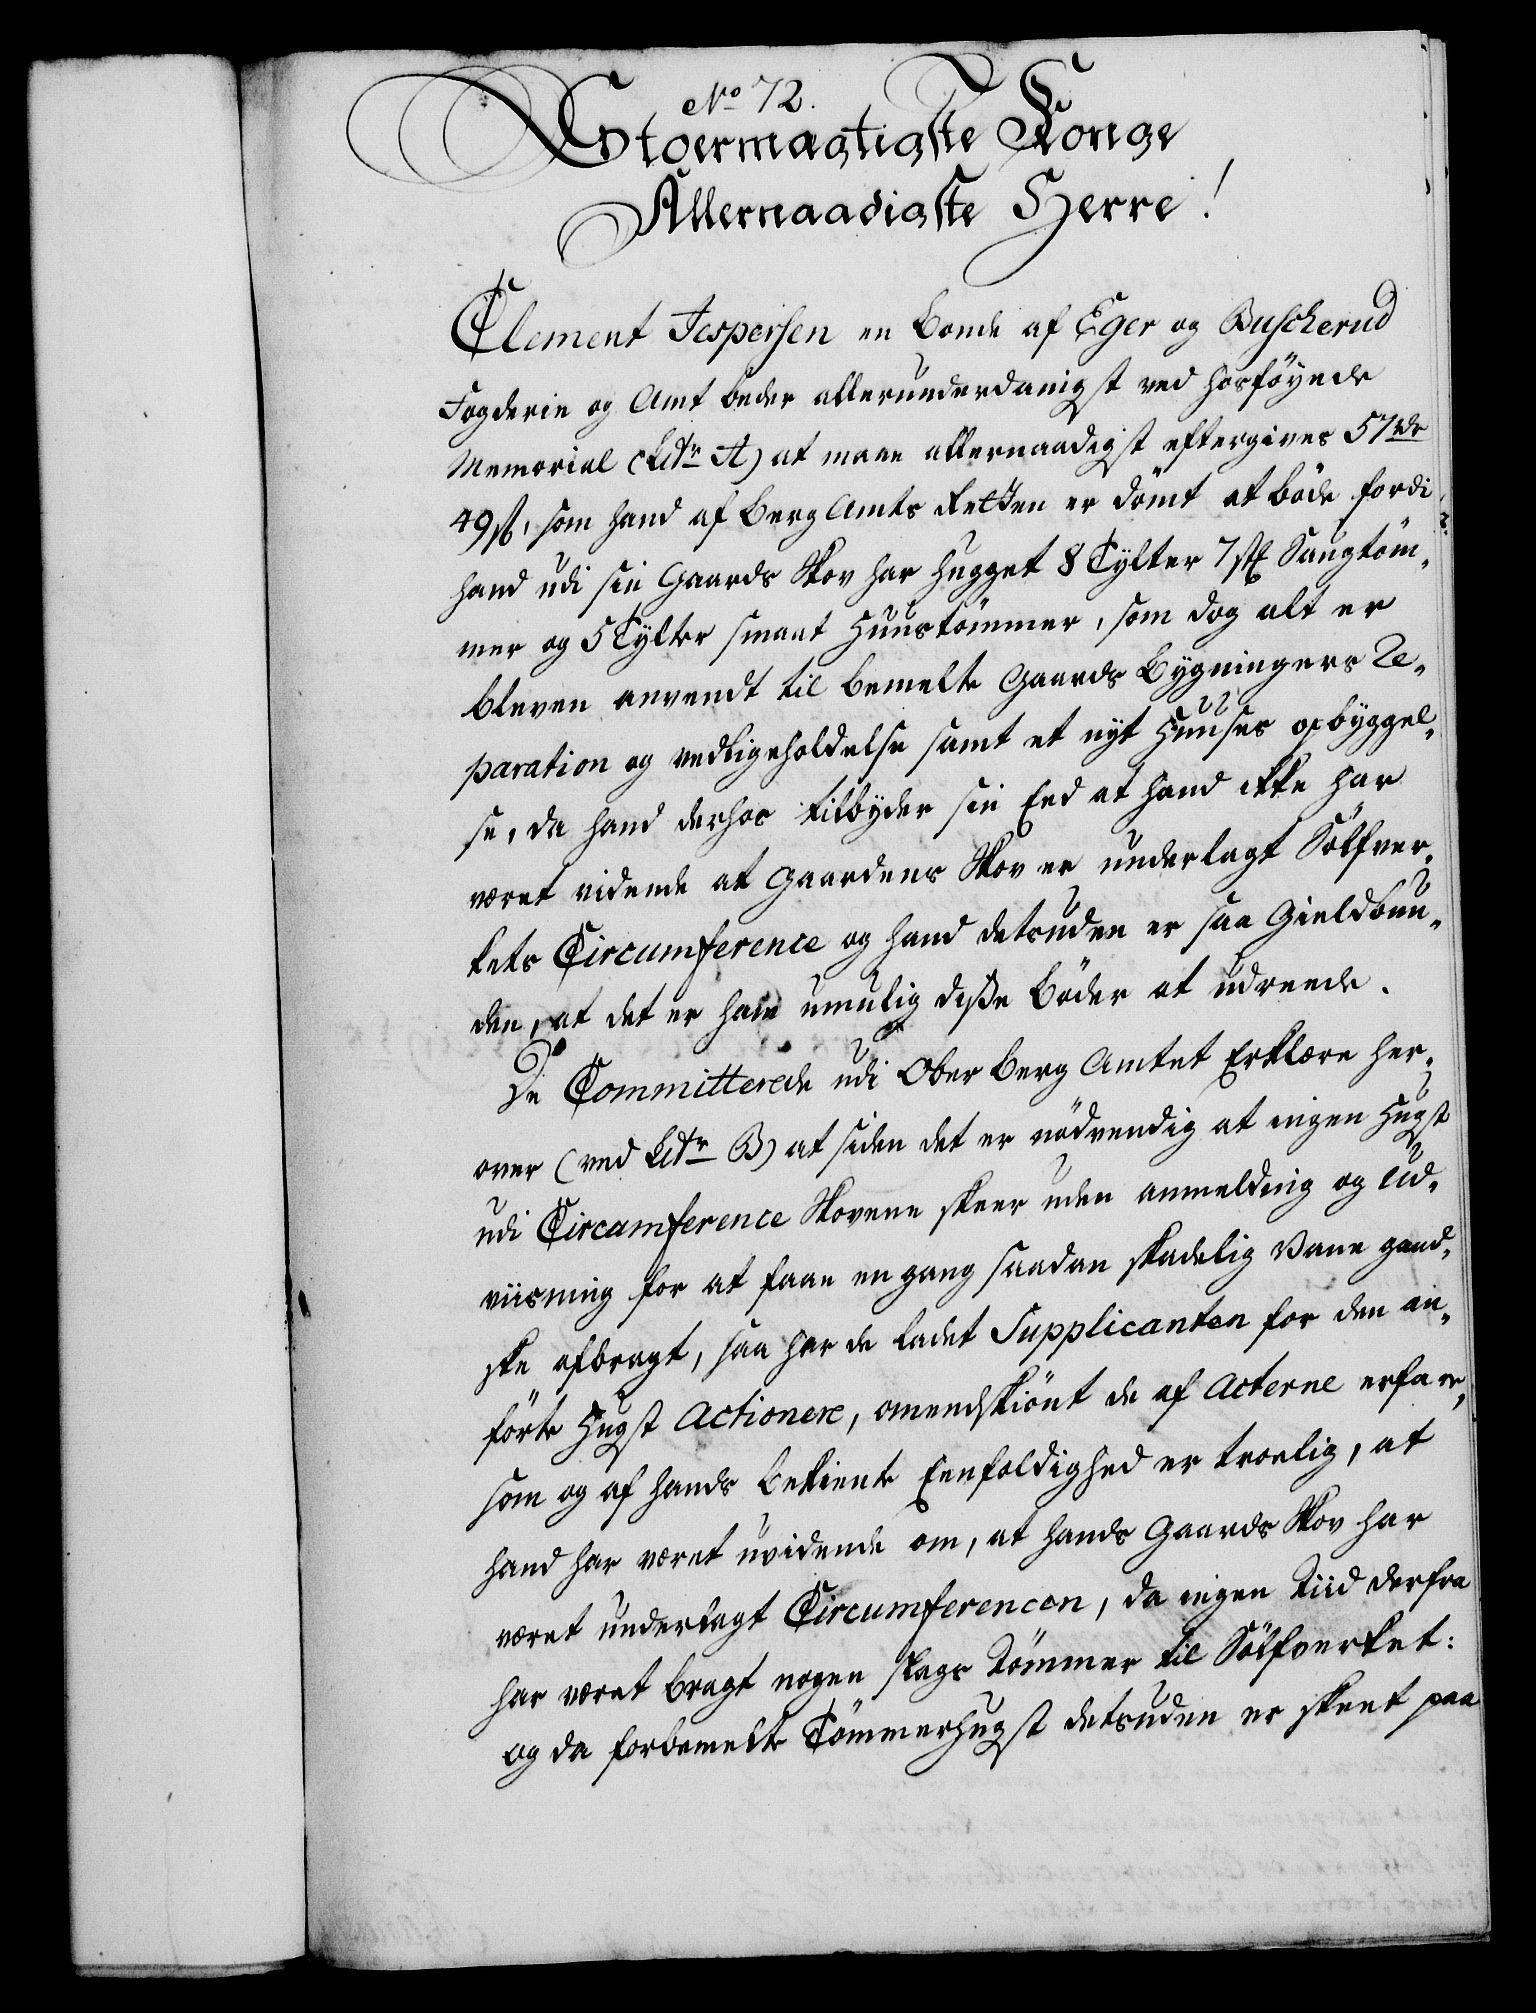 No 72.
Stoermægtigste Konge
Allernaadigste Herre!
Clement Jespersen en Bonde af Eger og Buscherud
Fogderie og Amt beder allerunderdanigst ved hosföyede
Memorial (Littr A) at maae allernaadigst eftergives 57 rdr
49 ß, som hand af Berg Amts Retten er dömt at böde fordi
hand udi sin Gaards Skov har hugget 8 Tylter 7 stk Saugtöm-
mer og 5 Tylter smaat Huustömmer, som dog alt er
bleven anvendt til bemelte Gaards Bygningers Re-
paration og vedligeholdelse samt et nyt Huuses opbyggel-
se, da hand derhos tilbyder sin Eed at hand ikke har
været vidende at Gaardens Skov er underlagt Sölfver-
kets Circumference og hand desuden er saa Gieldbun-
den, at det er ham umulig disse Böder at udreede.
De Committerede udi Ober Berg Amtet Erklære her-
over (ved Littr B) at siden det er nödvendig at ingen Hugst
udi Circumference Skovene skeer uden anmelding og Ud-
viisning for at faae en gang saadan skadelig Vane gand-
ske afbragt, saa har de ladet Supplicanten for den an-
förte Hugst Actionere, omendskiönt de af Acterne erfare,
som og af hands bekiente Eenfoldighed er troelig, at
hand har været uvidende om, at hands Gaards Skov har
været underlagt Circumferencen, da ingen Tiid derfra
har været bragt nogen slags Tömmer til Sölfverket:
og da forbemelte Tömmerhugst desuden er skeet paa